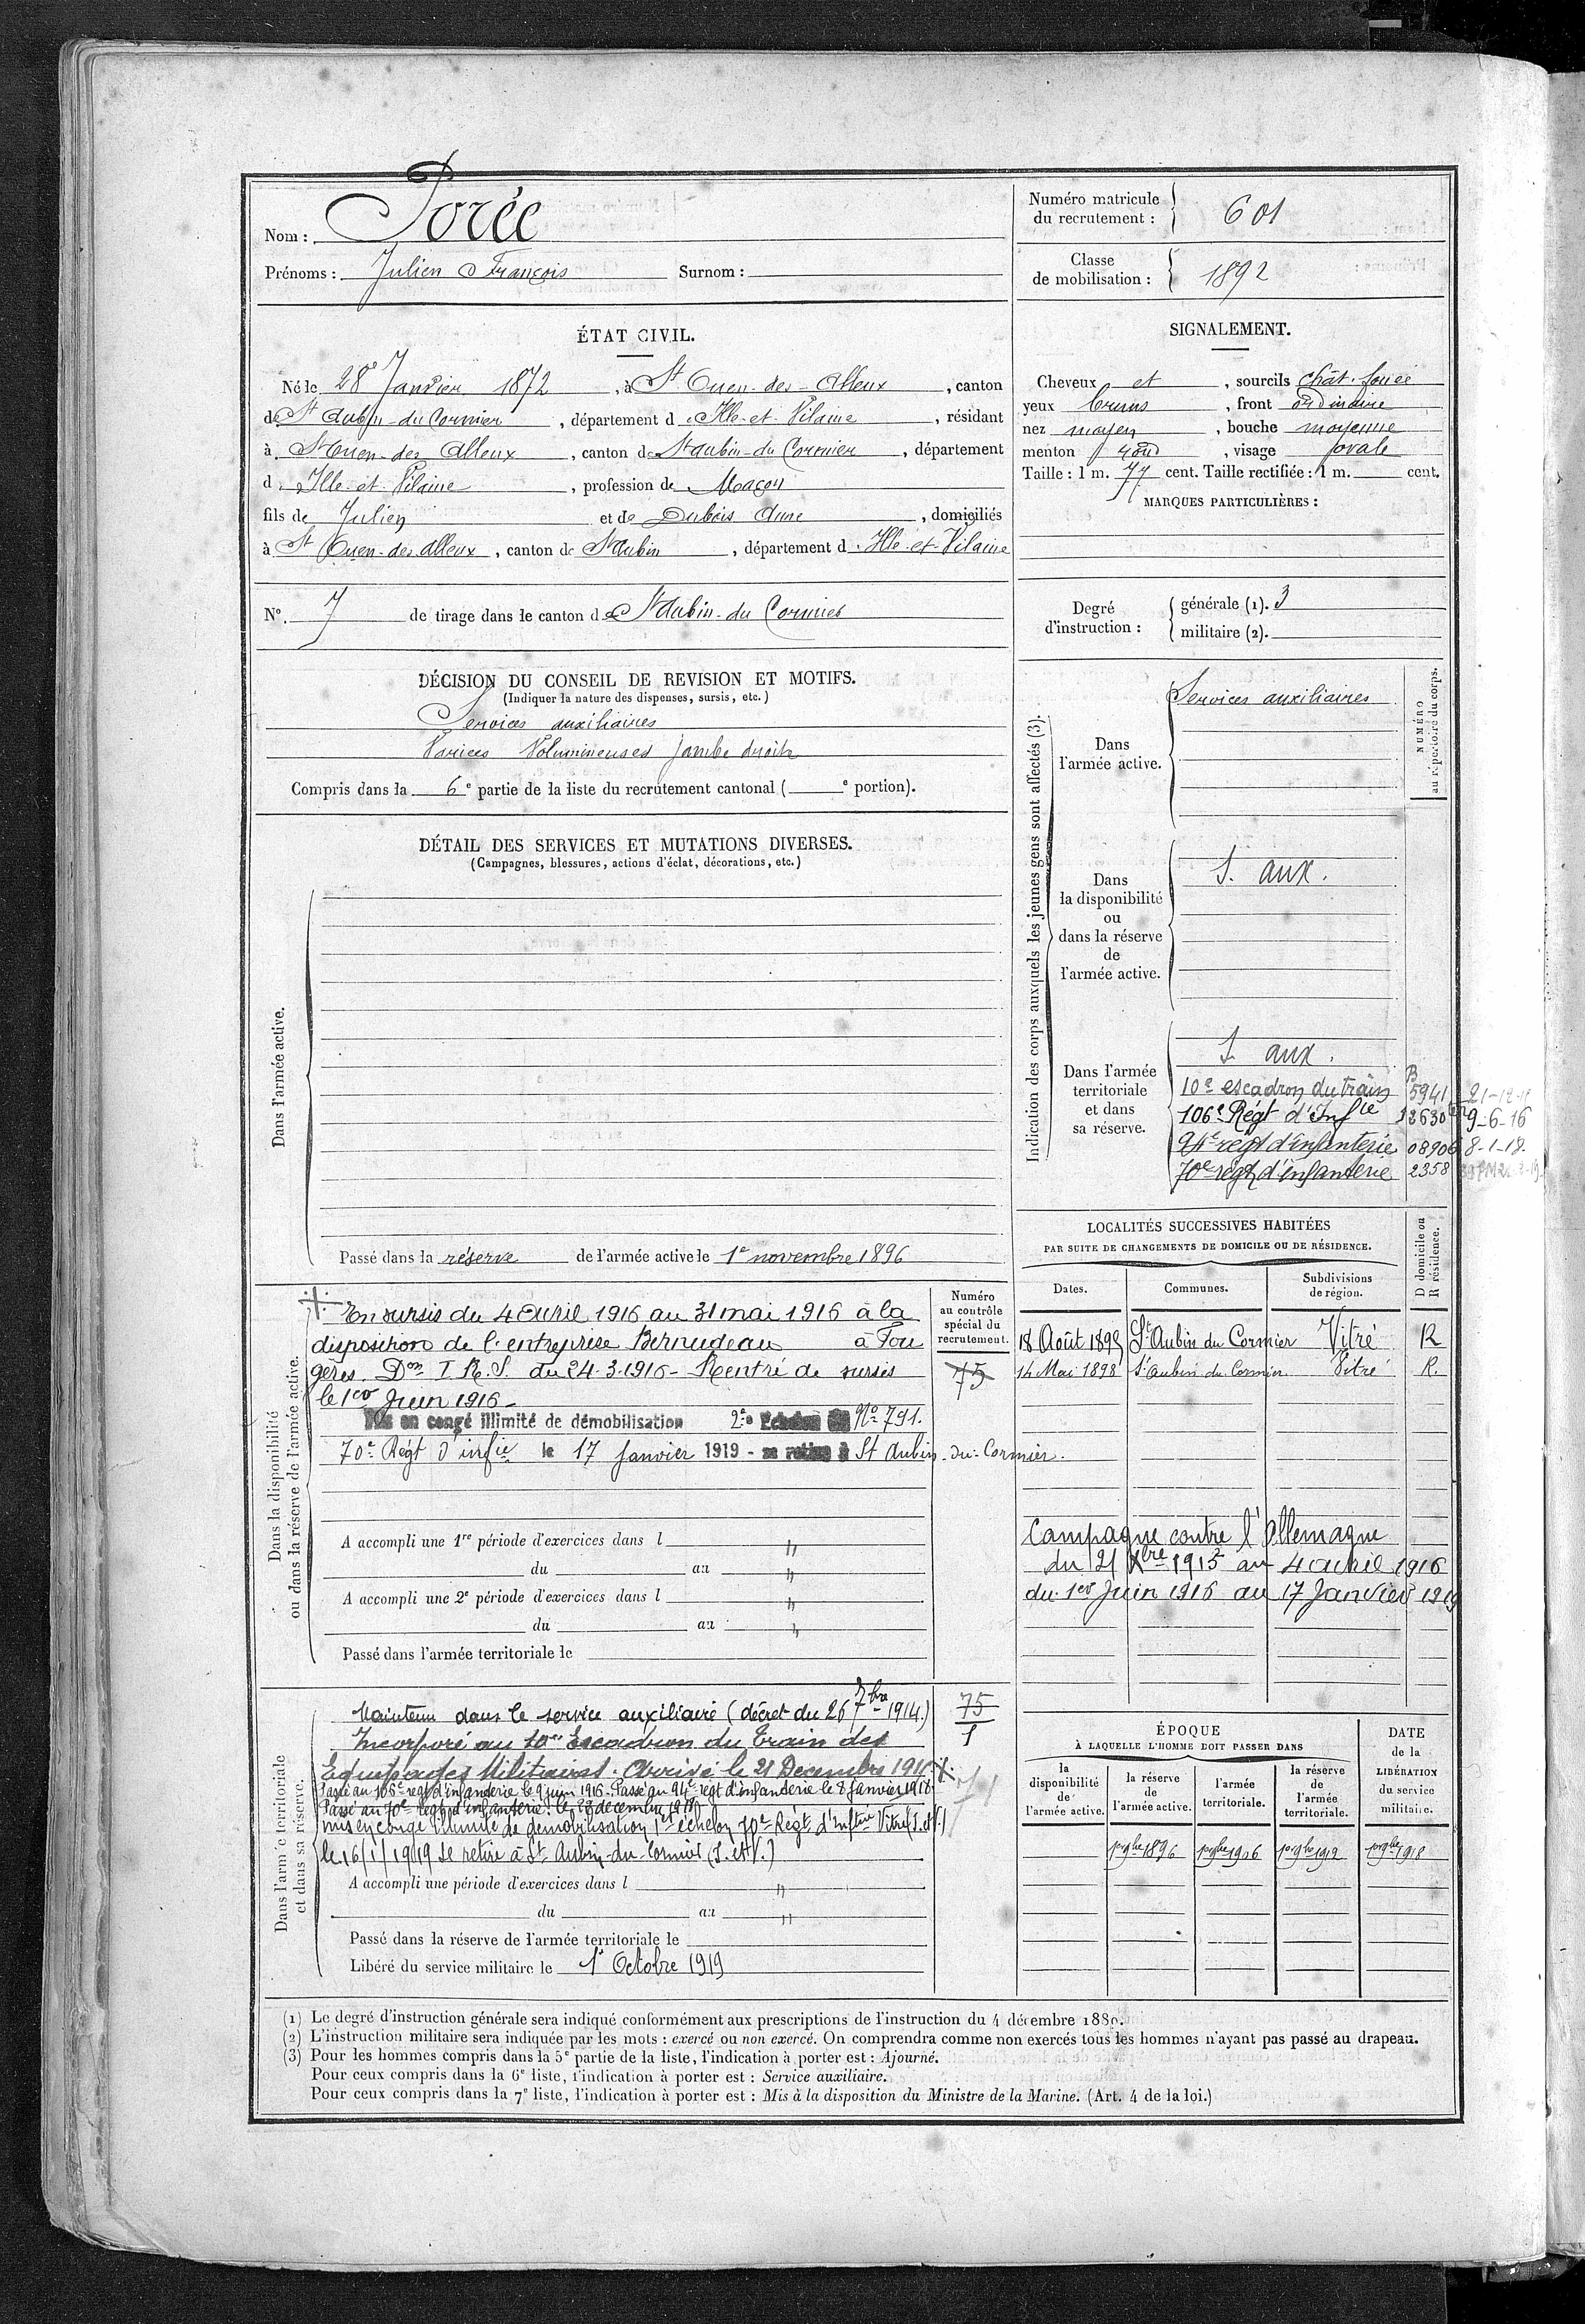 Nom : Porée
Prénoms : Julien François Surnom :
Numéro matricule du recrutement : 601
Classe de mobilisation : 1892
ÉTAT CIVIL.
Né le 28 Janvier 1872, à St Ouen-des-Alleux, canton
de St Aubin-du-Cormier, département d'Ille-et-Vilaine, résidant
à St Ouen-des-Alleux, canton de St Aubin-du-Cormier, département
d'Ille-et-Vilaine, profession de Maçon
fils de Julien et de Dubois Anne, domiciliés
à St Ouen-des-Alleux, canton de St Aubin, département d'Ille-et-Vilaine
SIGNALEMENT.
Cheveux et, sourcils chât. foncé
yeux bruns, front ordinaire
nez moyen, bouche moyenne
menton rond, visage ovale
Taille : 1 m. 77 cent. Taille rectifiée : 1 m. cent.
MARQUES PARTICULIÈRES :
N° 7 de tirage dans le canton de St Aubin-du-Cormier
Degré d'instruction :
générale (1). 3
militaire (2).
DÉCISION DU CONSEIL DE REVISION ET MOTIFS.
(Indiquer la nature des dispenses, sursis, etc.)
Services auxiliaires
Varices Volumineuses jambe droite
Compris dans la 6e partie de la liste du recrutement cantonal ( e portion).
DÉTAIL DES SERVICES ET MUTATIONS DIVERSES.
(Campagnes, blessures, actions d'éclat, décorations, etc.)
Dans l'armée active.
Passé dans la réserve de l'armée active le 1er novembre 1896
Indication des corps auxquels les jeunes gens sont affectés (3).
NUMÉRO au répertoire du corps.
Dans l'armée active.
Services auxiliaires
Dans la disponibilité ou dans la réserve de l'armée active.
S. aux.
Dans l'armée territoriale et dans sa réserve.
S. aux.
10e escadron du train B 5941
106e Régt d'Infie 9-6-16
94e régt d'infanterie 08906 8-1-18.
70e régt d'infanterie 2358
LOCALITÉS SUCCESSIVES HABITÉES
PAR SUITE DE CHANGEMENTS DE DOMICILE OU DE RÉSIDENCE.
Dates. Communes. Subdivisions de région. D domicile ou R résidence.
18 Août 1895 St Aubin du Cormier Vitré R
14 Mai 1898 St Aubin du Cormier Vitré R.
Campagne contre l'Allemagne
du 21 Xbre 1915 au 4 avril 1916
du 1er Juin 1916 au 17 Janvier 1919
Dans la disponibilité ou dans la réserve de l'armée active.
Numéro au contrôle spécial du recrutement.
75
En sursis du 4 Avril 1916 au 31 mai 1916 à la
disposition de l'entreprise Bernudeau à Fou
gères. Don I. R. S. du 24-3-1916 - Rentré de sursis
le 1er Juin 1916 -
Mis en congé illimité de démobilisation 2e Echelon No 791.
70e Régt d'infie le 17 Janvier 1919 - se retire à St Aubin-du-Cormier.
A accompli une 1re période d'exercices dans l
du au
A accompli une 2e période d'exercices dans l
du au
Passé dans l'armée territoriale le
Dans l'armée territoriale et dans sa réserve.
75
1
Maintenu dans le service auxiliaire (décret du 26 7bre 1914)
Incorporé au 10e Escadron du Train des
Equipages Militaires. Arrivé le 21 Decembre 1915
Passé au 106e régt d'infanterie le 9 juin 1916. Passé au 94e régt d'infanterie le 8 Janvier 1918
Passé au 70e régt d'infanterie le 28 décembre 1918
mis en congé illimité de démobilisation 1er échelon 70e Régt d'Inftie Vitré (I. et V.)
le 16/1/1919 se retire à St Aubin-du-Cormier (I. et V.)
A accompli une période d'exercices dans l
du au
Passé dans la réserve de l'armée territoriale le
Libéré du service militaire le 1er Octobre 1919
ÉPOQUE
À LAQUELLE L'HOMME DOIT PASSER DANS
la disponibilité de l'armée active. la réserve de l'armée active. l'armée territoriale. la réserve de l'armée territoriale.
DATE de la LIBÉRATION du service militaire.
1er 9bre 1896 1er 9bre 1906 1er 9bre 1912 1er 9bre 1918
(1) Le degré d'instruction générale sera indiqué conformément aux prescriptions de l'instruction du 4 décembre 1889.
(2) L'instruction militaire sera indiquée par les mots : exercé ou non exercé. On comprendra comme non exercés tous les hommes n'ayant pas passé au drapeau.
(3) Pour les hommes compris dans la 5e partie de la liste, l'indication à porter est : Ajourné.
Pour ceux compris dans la 6e liste, l'indication à porter est : Service auxiliaire.
Pour ceux compris dans la 7e liste, l'indication à porter est : Mis à la disposition du Ministre de la Marine. (Art. 4 de la loi.)